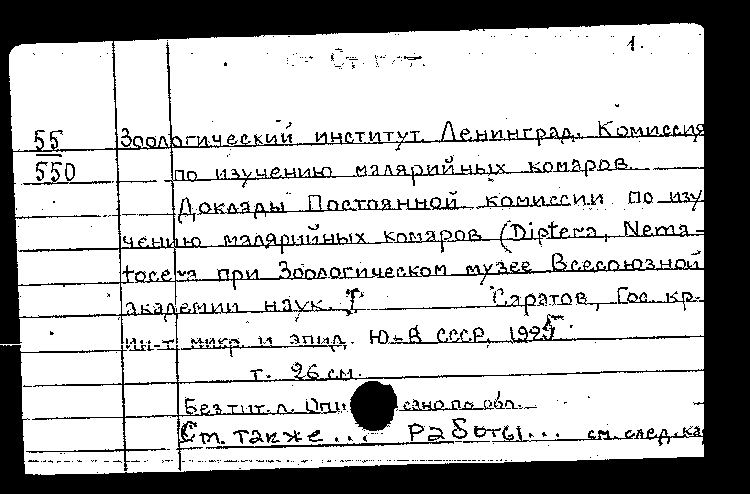 1.
55 Зоологический институт. Ленинград. Комиссия
550 по изучению малярийных комаров.
Доклады Постоянной комиссии по изу
чению малярийных комаров (Diptera, Nema-
tocera при Зоологическом музее Всесоюзной
академии наук. I Саратов, Гос. кр.
ин-т микр. и эпид. Ю-В СССР, 1925.
т. 26 см.
Без тит. л. Опи сано по обл.
См. также... Работы... см. след. ка